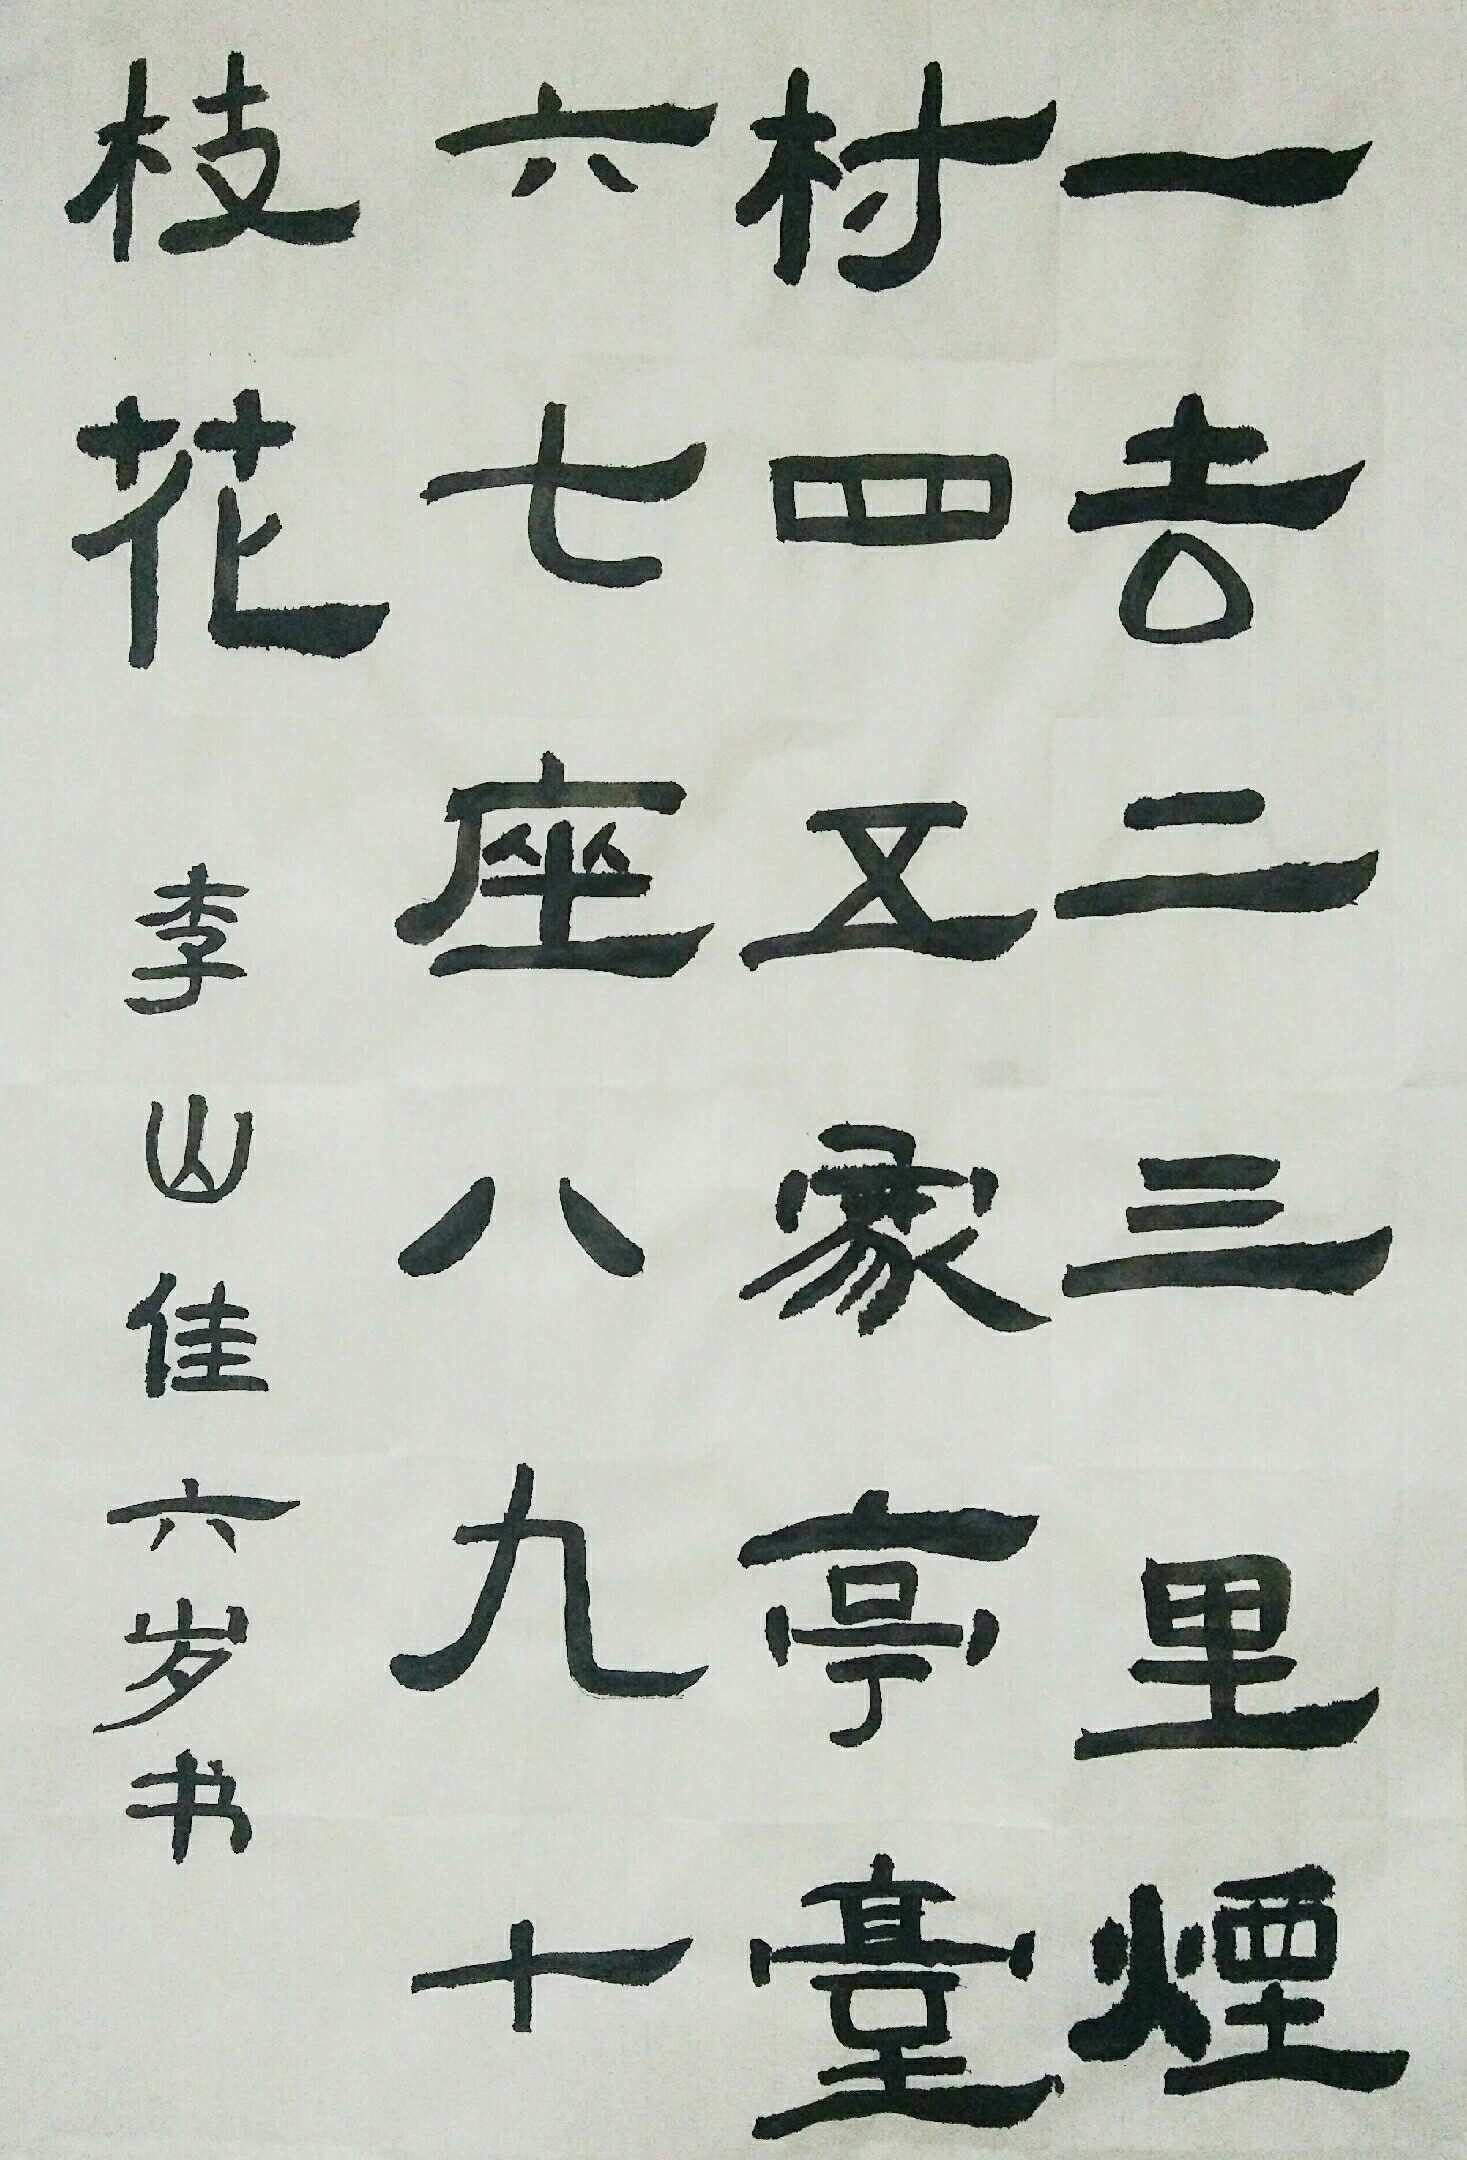 一去二三里煙
村四五家亭臺
六七座八九十
枝花 李山佳六岁书